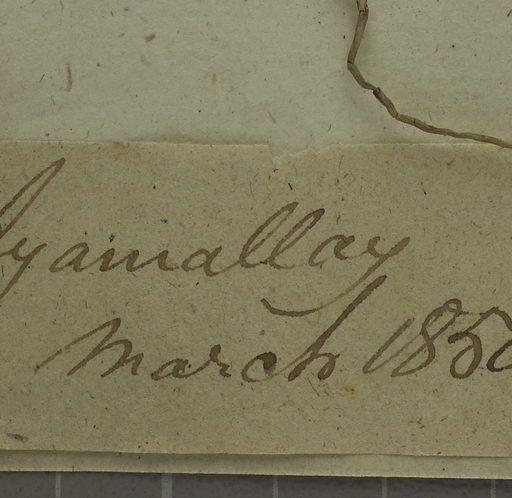 yamallay
March 185